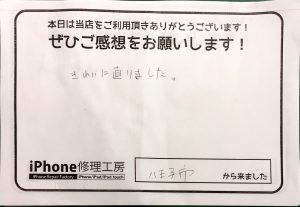 本日は当店をご利用頂きありがとうございます！
ぜひご感想をお願いします！
きれいに直りました。
iPhone修理工房
iPhone Repair Factory iPhone/iPad/iPod touch
八王子市 から来ました